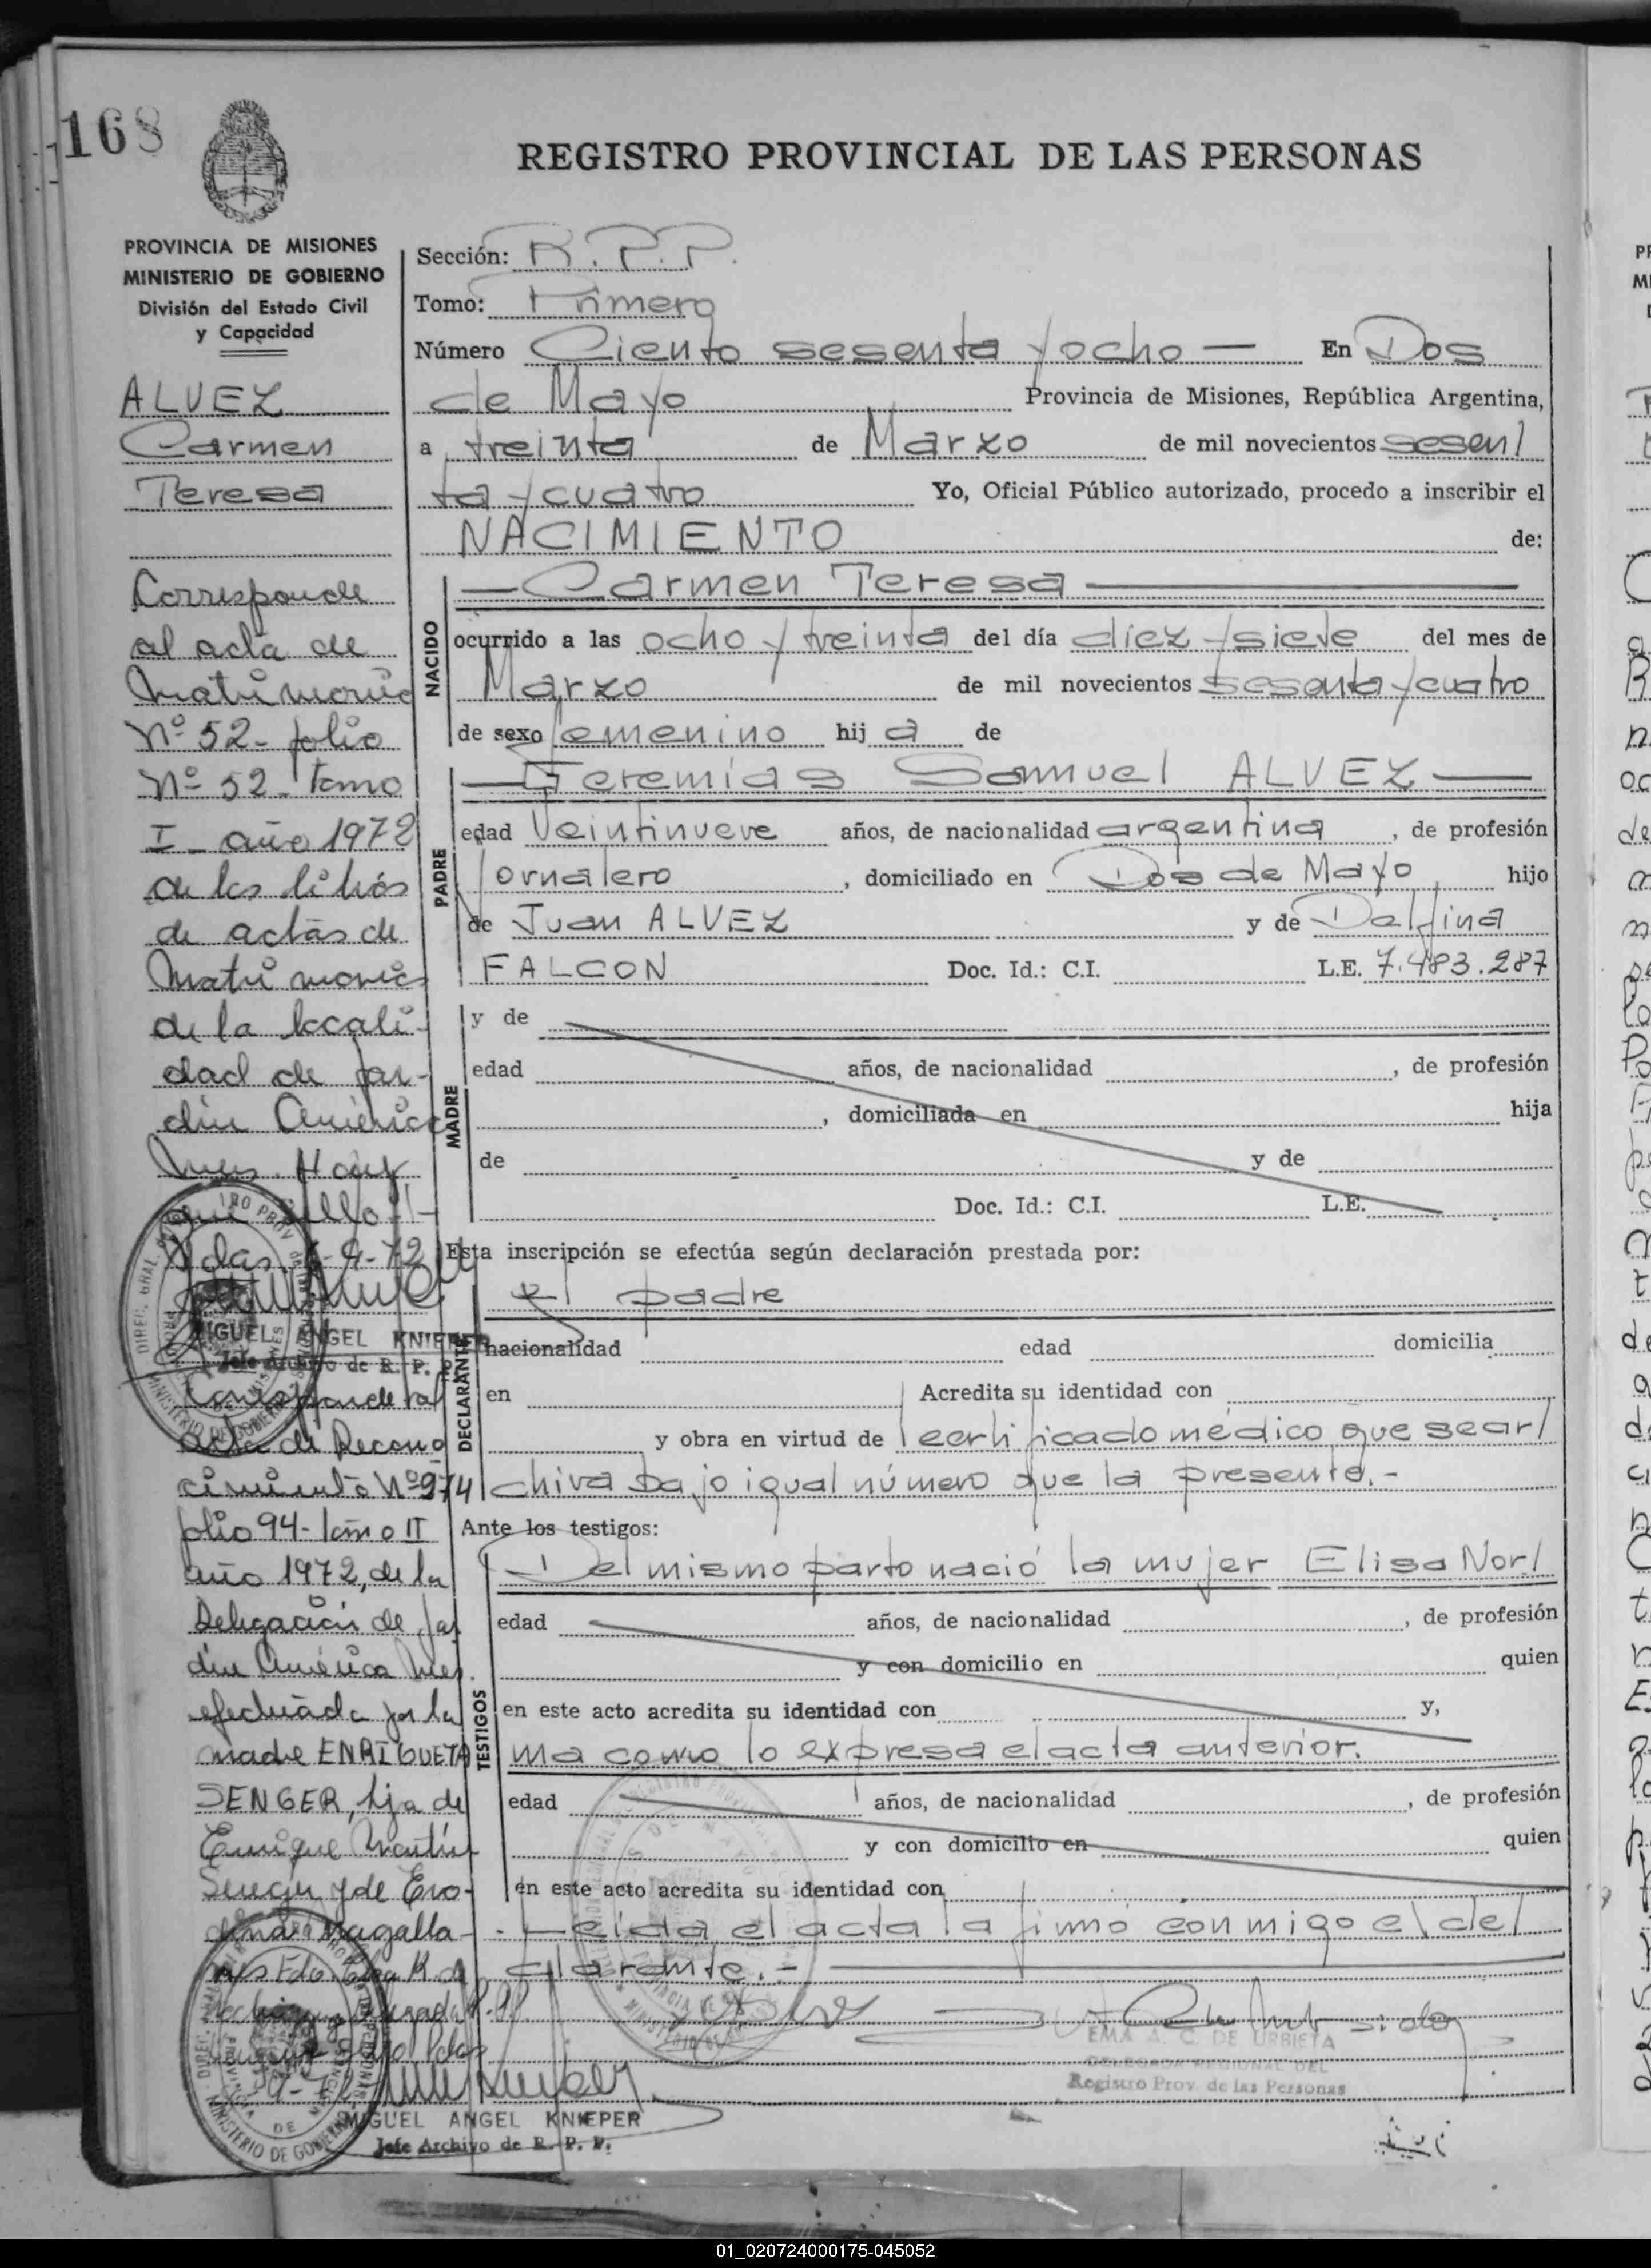 168
REGISTRO PROVINCIAL DE LAS PERSONAS
PROVINCIA DE MISIONES
MINISTERIO DE GOBIERNO
División del Estado Civil
y Capacidad
ALVEZ
Carmen
Teresa
Corresponde
al acta de
Matrimonio
Nº 52 - folio
Nº 52 - tomo
I - año 1972
de los libros
de actas de
Matrimonios
de la locali-
dad de Jar-
din América
Mnes. Hay
Pdas. 4-72
MIGUEL ANGEL KNIEPER
Jefe Archivo de R. P. P.
Corresponde al
acta de Recono
cimiento Nº 974
folio 94 - Tomo II
año 1972, de la
Delegación de Jar
din América Mnes.
efectuada por la
madre ENRIQUETA
SENGER, hija de
Enrique Martin
Senger y de
MIGUEL ANGEL KNIEPER
Jefe Archivo de R. P. P.
Sección: R.P.P.
Tomo: Primero
Número Ciento sesenta y ocho — En Dos
de Mayo Provincia de Misiones, República Argentina,
a treinta de Marzo de mil novecientos sesen/
ta y cuatro Yo, Oficial Público autorizado, procedo a inscribir el
NACIMIENTO de:
NACIDO
— Carmen Teresa —
ocurrido a las ocho y treinta del día diez y siete del mes de
Marzo de mil novecientos sesenta y cuatro
de sexo femenino hij a de
PADRE
— Geremías Samuel ALVEZ —
edad Veintinueve años, de nacionalidad argentina, de profesión
Jornalero, domiciliado en Dos de Mayo hijo
de Juan ALVEZ y de Delfina
FALCON Doc. Id.: C.I. L.E. 7.483.287
MADRE
y de
edad años, de nacionalidad , de profesión
, domiciliada en hija
de y de
Doc. Id.: C.I. L.E.
Esta inscripción se efectúa según declaración prestada por:
DECLARANTE
el padre
nacionalidad edad domicilia
en Acredita su identidad con
y obra en virtud de certificado médico que se ar/
chiva bajo igual número que la presente.-
Ante los testigos:
TESTIGOS
Del mismo parto nació la mujer Elisa Nor/
edad años, de nacionalidad , de profesión
y con domicilio en quien
en este acto acredita su identidad con y,
ma como lo expresa el acta anterior.
edad años, de nacionalidad , de profesión
y con domicilio en quien
en este acto acredita su identidad con
Leída el acta la firmó conmigo el de/
clarante.-
EMA A. C. DE URBIETA
DELEGADA REGIONAL DEL
Registro Prov. de las Personas
01_020724000175-045052